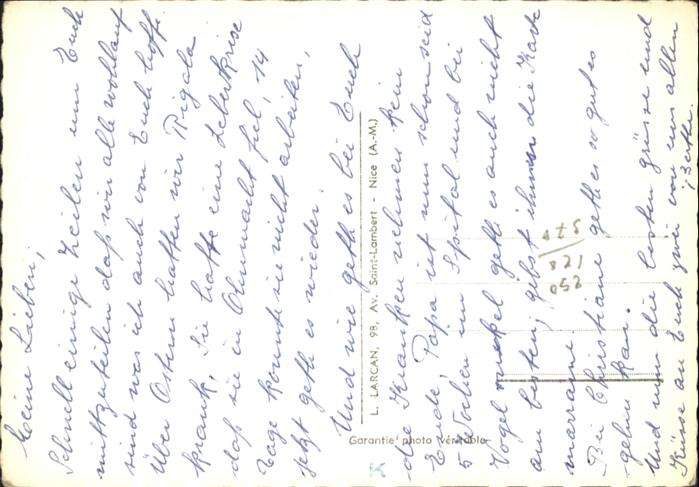 Meine Lieben,
Schnell einige Zeilen um Euch
mitzuteilen daß wir alle wohlauf
sind was ich auch von Euch hoffe.
Über Ostern hatten wir
krank. Sie hatte eine Leberkrise
daß sie in Ohnmacht fiel, 14
Tage konnte sie nicht arbeiten,
jetzt geht es wieder.
Und wie geht es bei Euch
die Kranken nehmen kein
Ende, Papa ist nun schon seit
5 Wochen im Spital und bei
Vogel geht es auch nicht
am besten, gibst ihnen die Karte
marraine
Bei Christiane geht es so gut es
gehen kan.
Und nun die besten grüsse und
Küsse an Euch zwei von uns allen
L. LARCAN, 98, Av. Saint-Lambert - Nice (A.-M.)
Garantie photo véritable
821
052